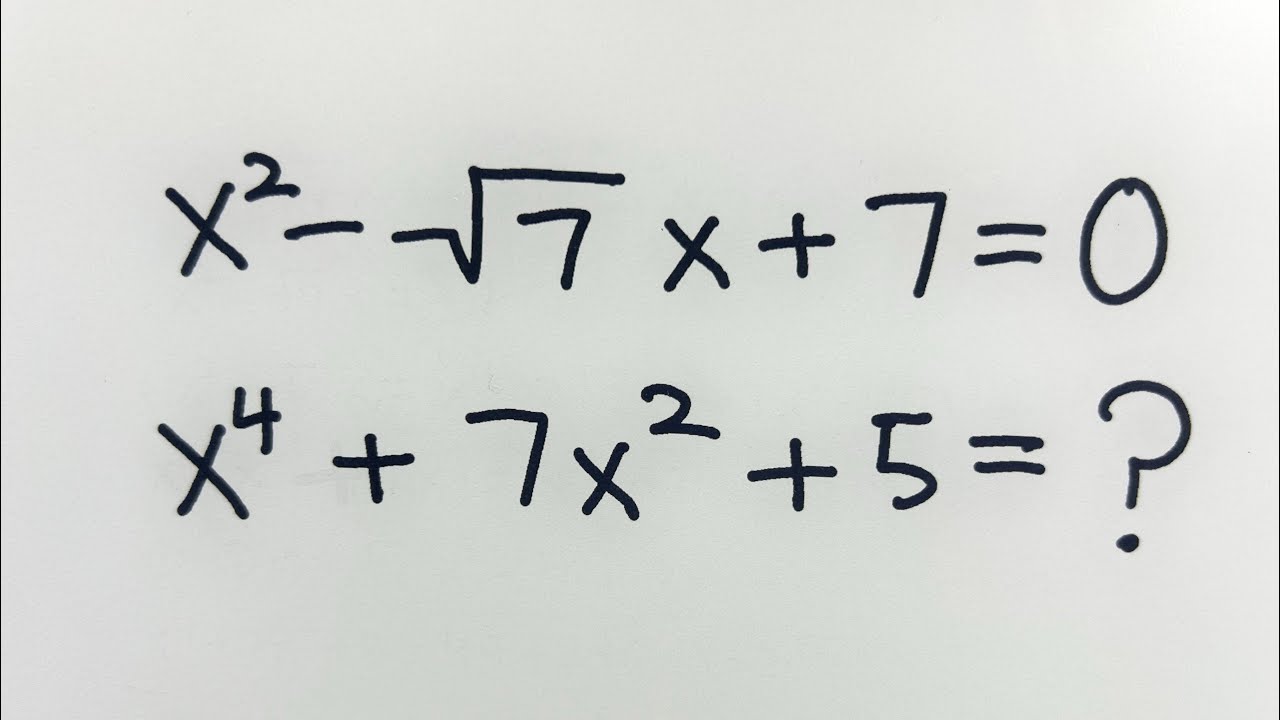 x² - √7 x + 7 = 0
x⁴ + 7x² + 5 = ?